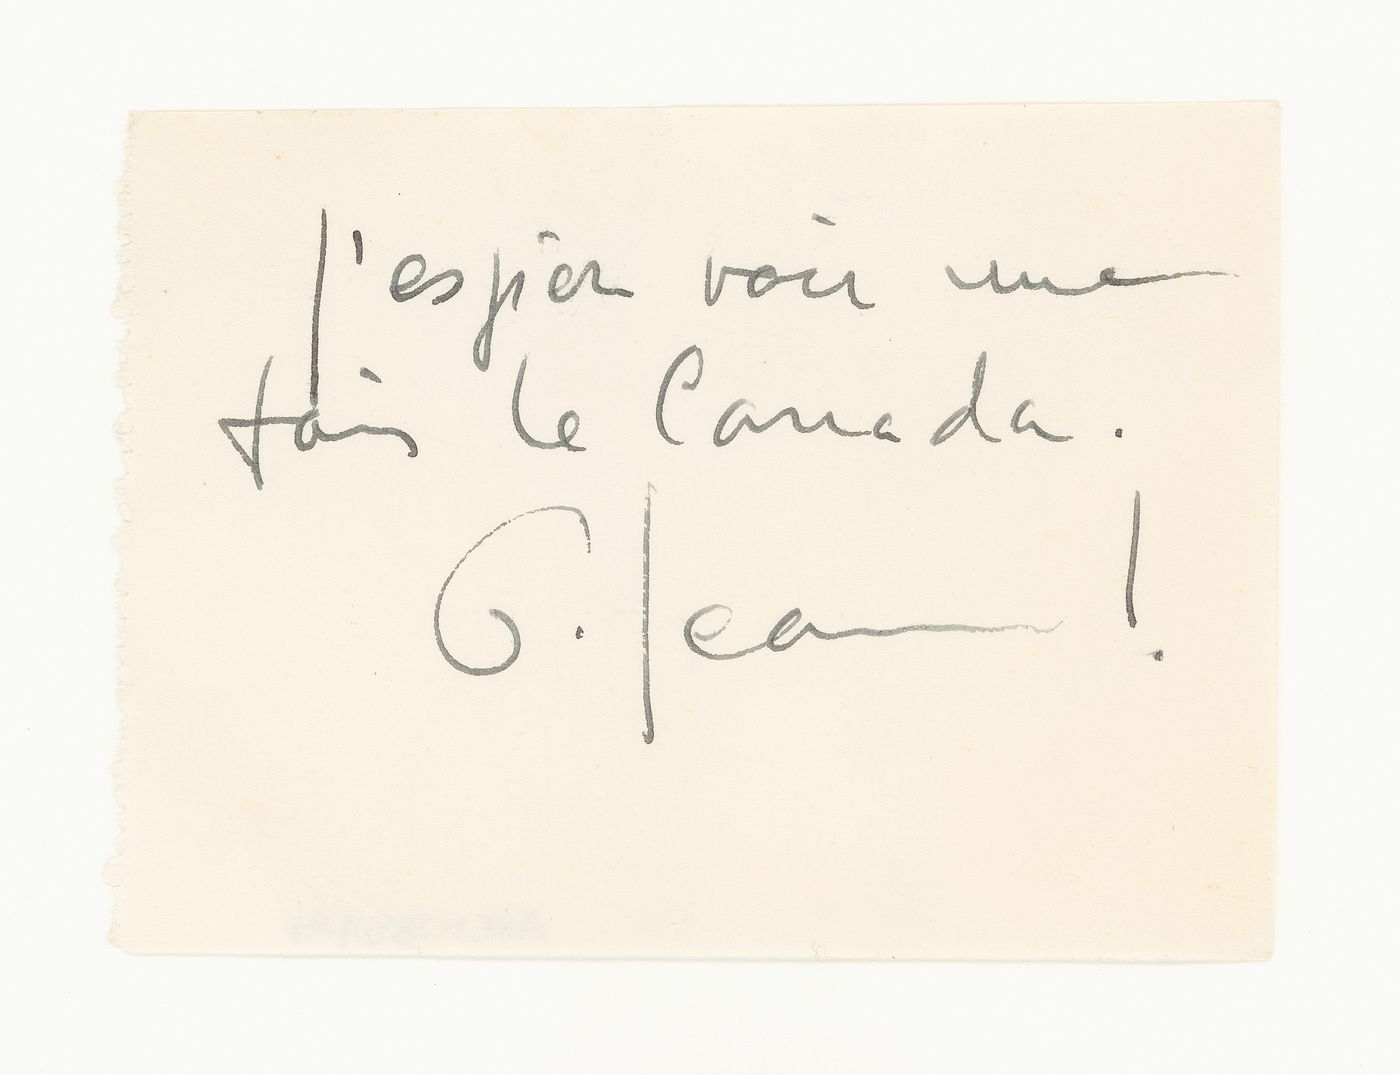 j'espèr voir une
fois le Canada.
G. Jean !